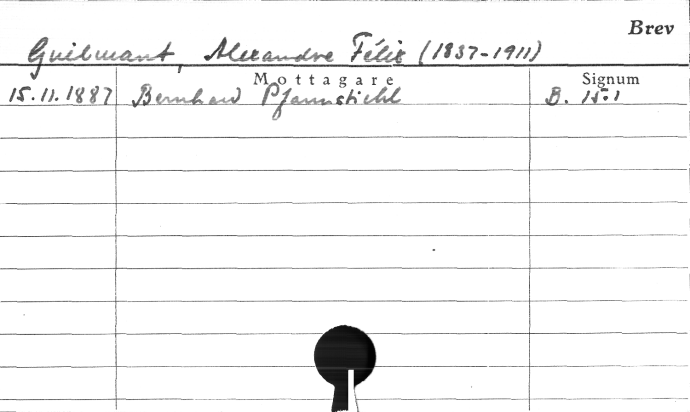 Brev
Guilmant, Alexandre Félix (1837-1911)
Mottagare Signum
15.11.1887 Bernhard Pfannstiehl B. 15.1